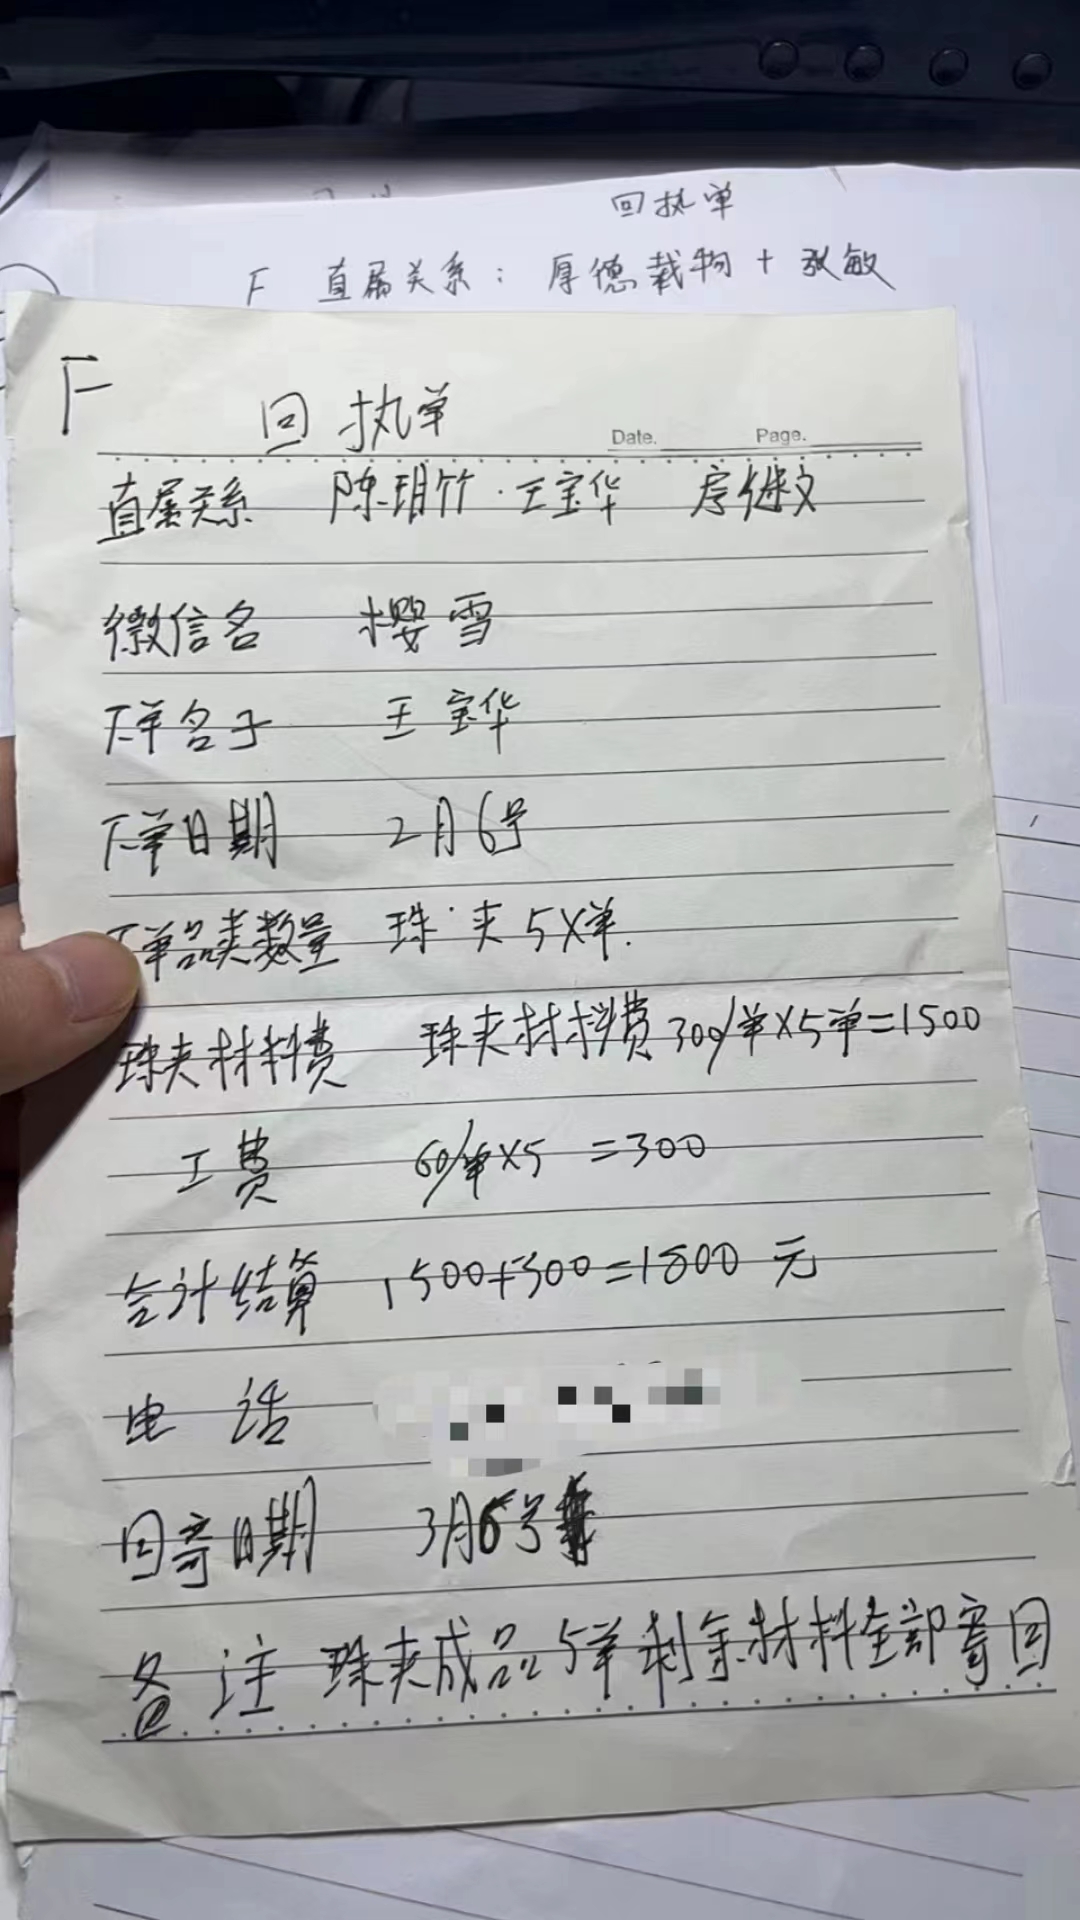 回执单
F 直属关系：厚德载物+张敏
F
回执单
Date. Page.
直属关系 陈玥竹·王宝华 房继文
微信名 樱雪
下单名子 王宝华
下单日期 2月6号
下单品类数量 珠·夹5X单.
珠夹材料费 珠夹材料费300/单X5单=1500
工费 60/单X5 =300
合计结算 1500+300=1800 元
电话
回寄日期 3月6号
备注 珠夹成品5单剩余材料全部寄回